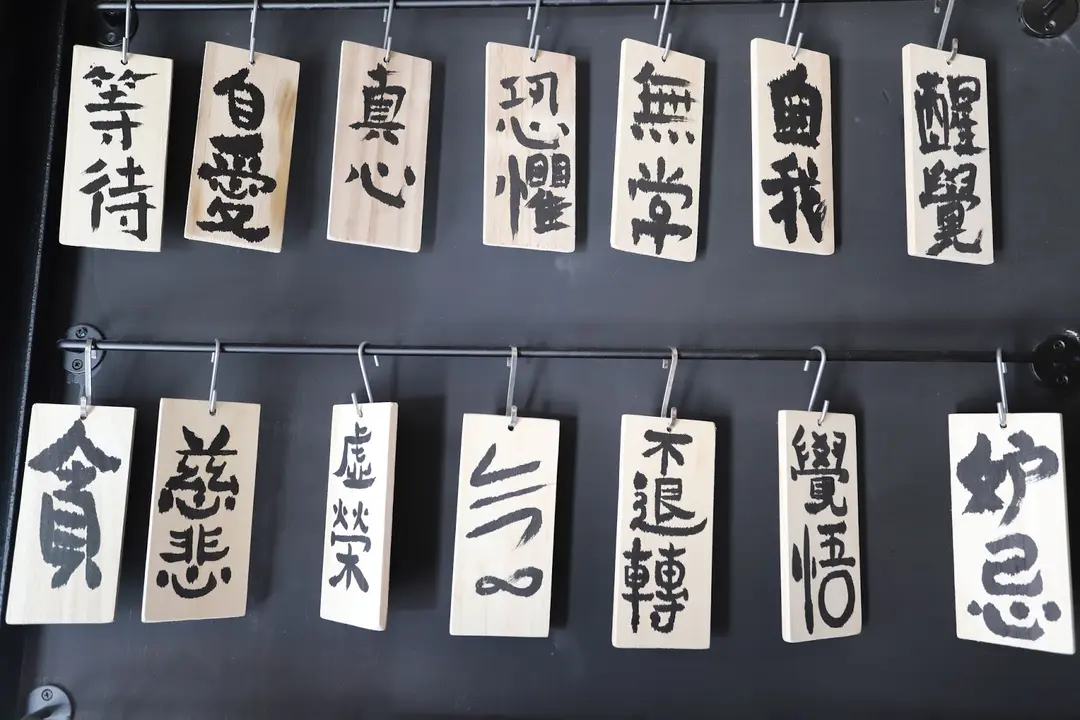 等待
自愛
真心
恐懼
無常
自我
醒覺
貪
慈悲
虛榮
不退轉
覺悟
妒忌